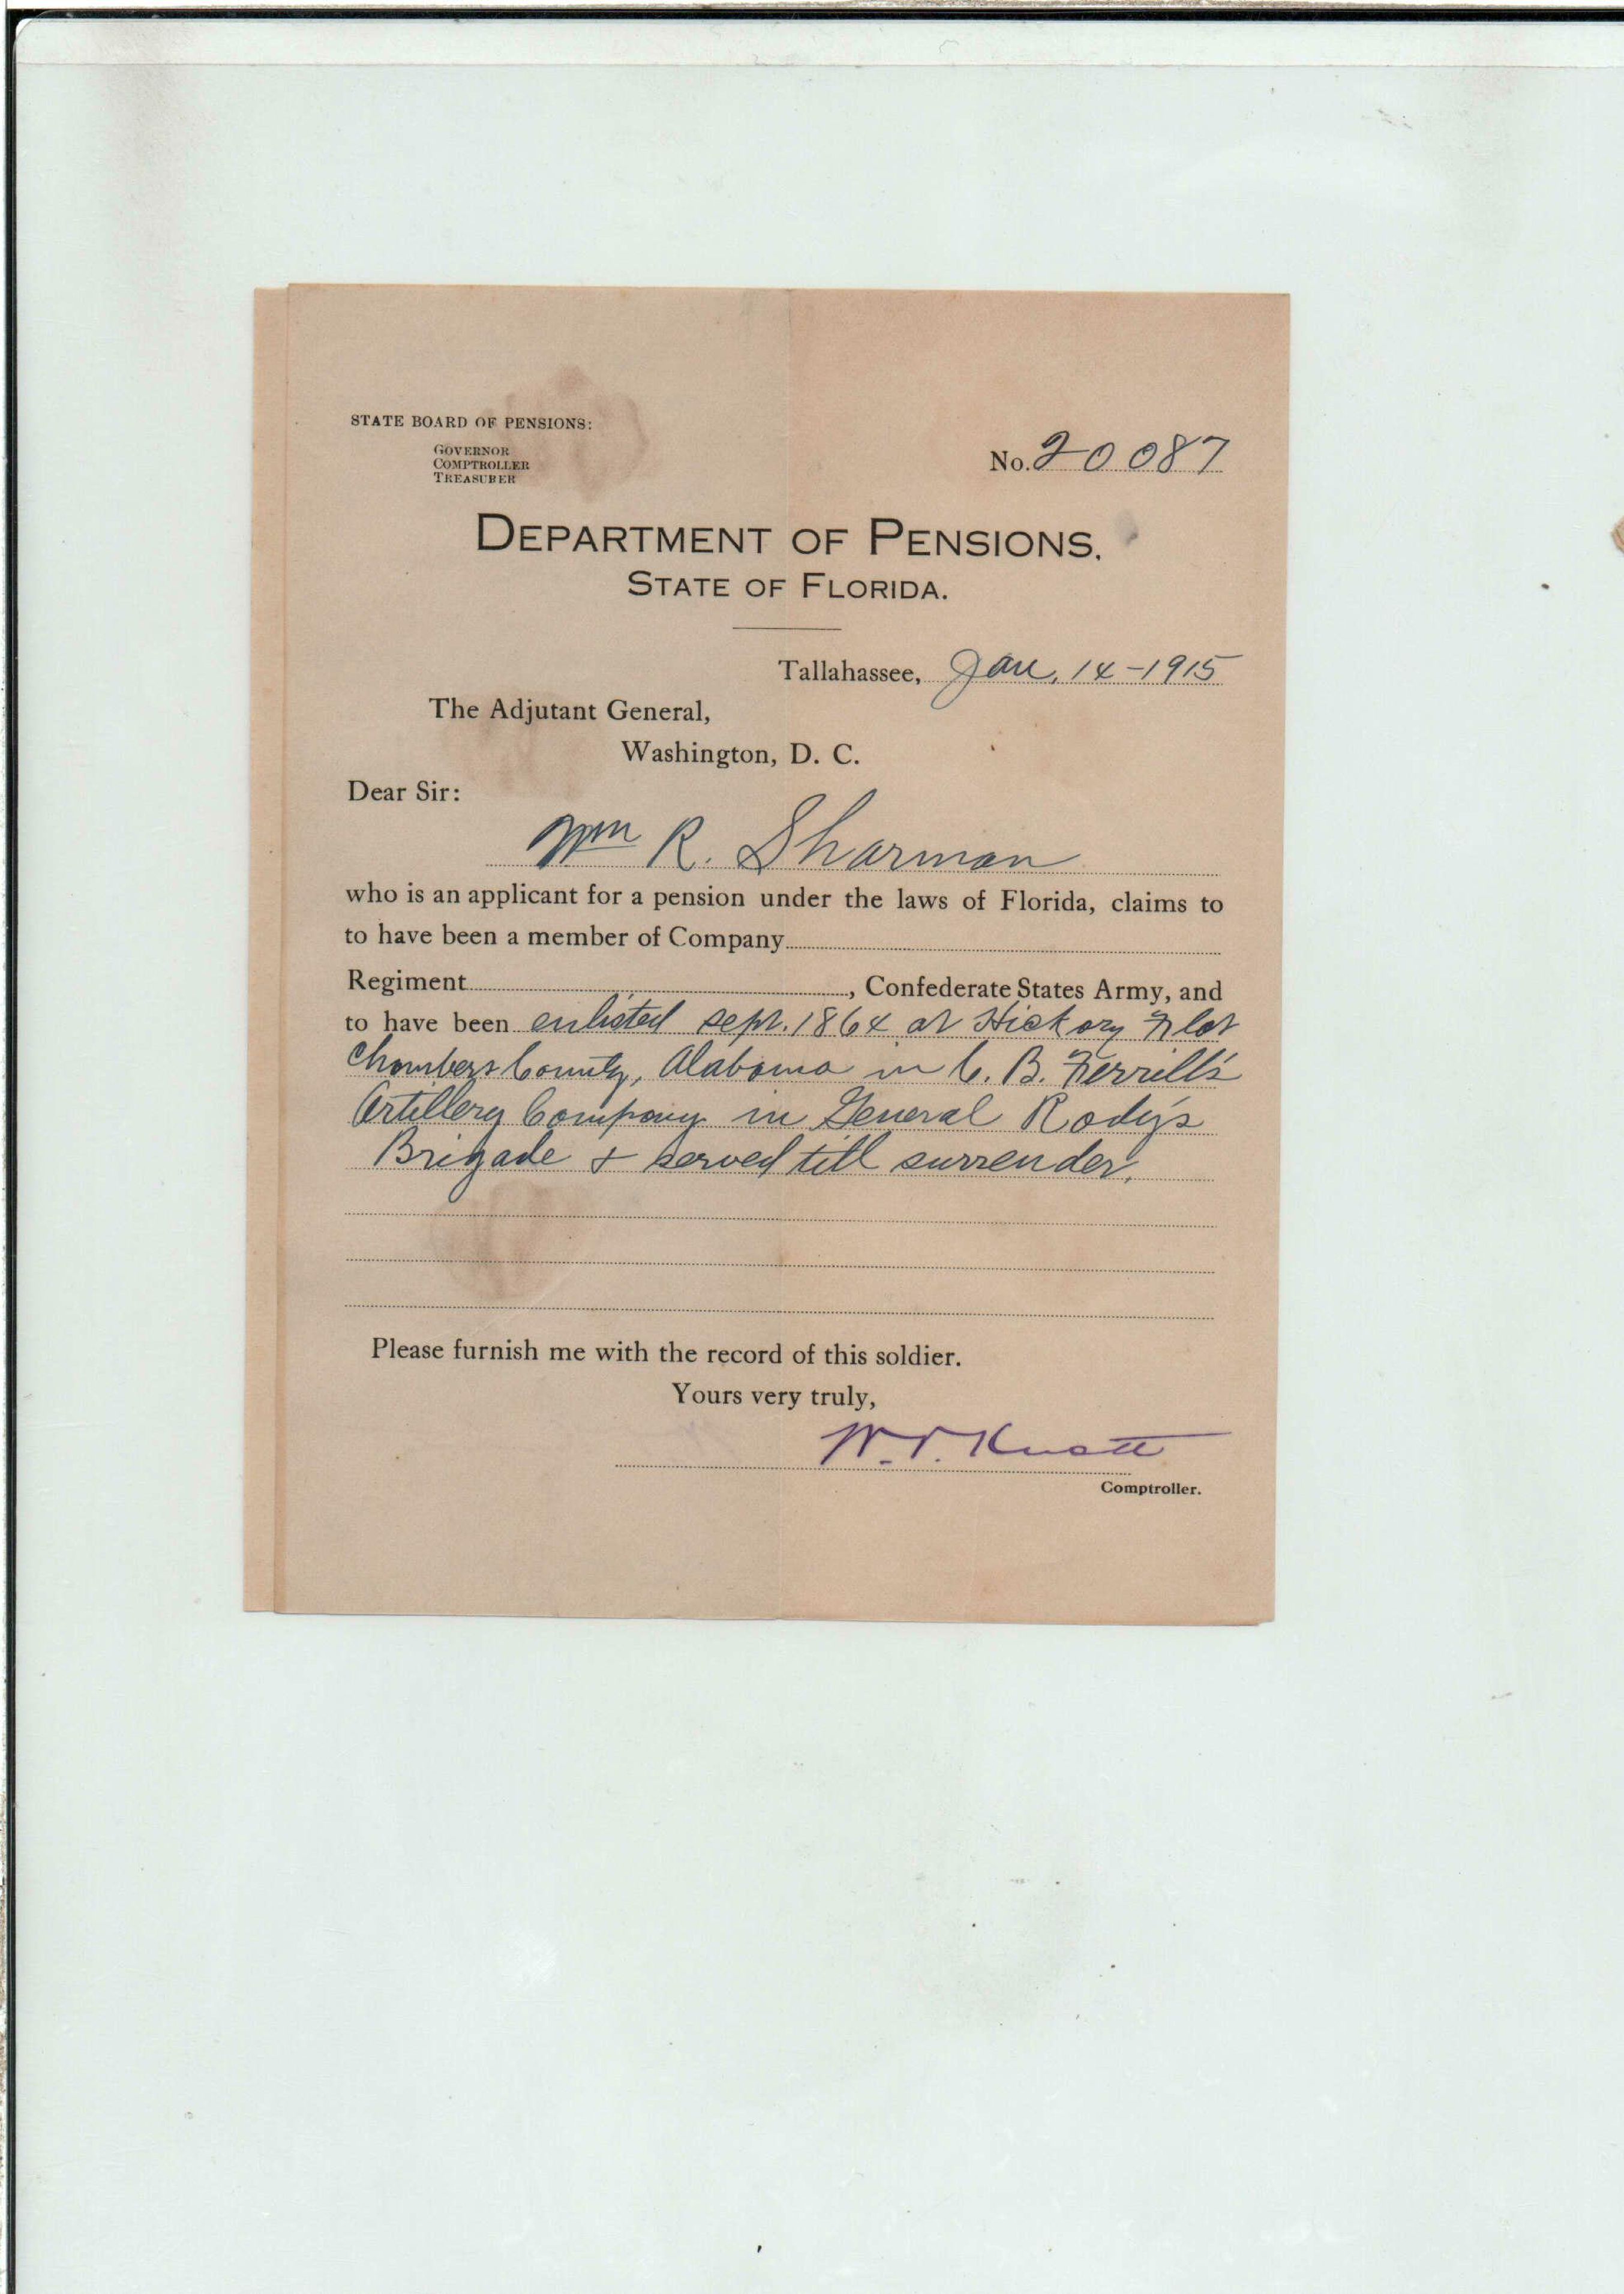 STATE BOARD OF PENSIONS:
GOVERNOR
COMPTROLLER
TREASURER
No. 20087
DEPARTMENT OF PENSIONS.
STATE OF FLORIDA.
Tallahassee, Jan. 14-1915
The Adjutant General,
Washington, D. C.
Dear Sir:
Wm R. Sharman
who is an applicant for a pension under the laws of Florida, claims to
to have been a member of Company
Regiment , Confederate States Army, and
to have been enlisted sept. 1864 at Hickory Flat
Chambers County, Alabama in C. B. Ferrell's
Artillery Company in General Rody's
Brigade & served till surrender.
Please furnish me with the record of this soldier.
Yours very truly,
W. V. Knott
Comptroller.